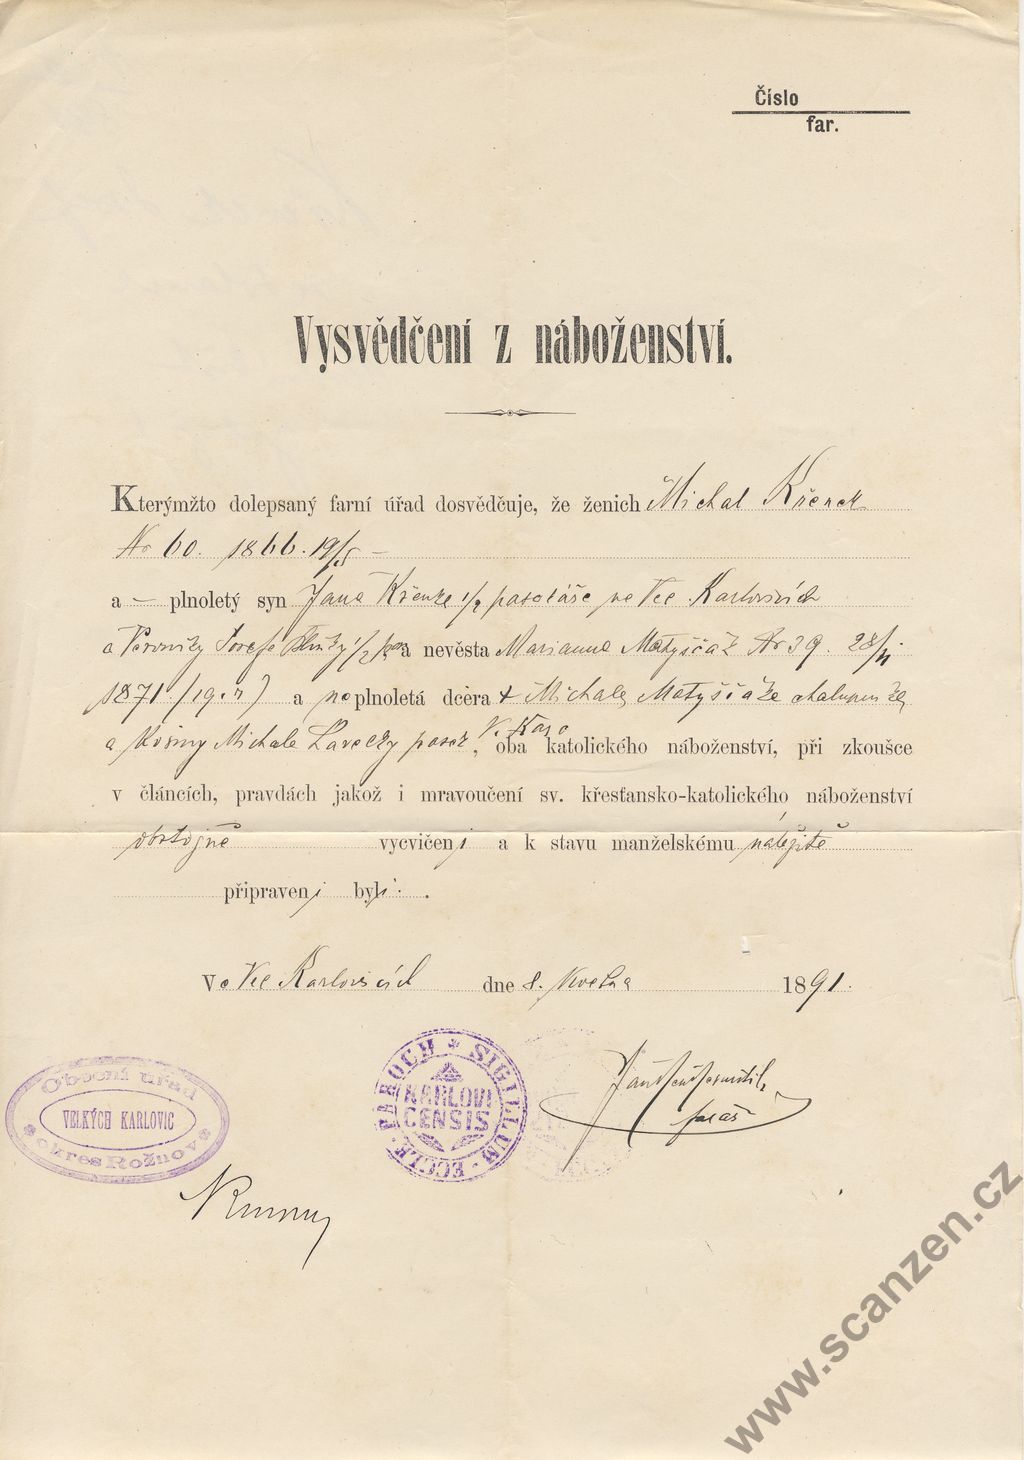 Číslo
far.
Vysvědčení z náboženství.
Kterýmžto dolepsaný farní úřad dosvědčuje, že ženich Michal Křenek
Nr 60. 1866. 19/5 –
a – plnoletý syn Jana Křenka 1/2 pasekáře ve Vel. Karlovicích
a Veroniky Josefa 1/2 a nevěsta Marianna Matyščák Nr 39. 28/11
1871. a neplnoletá dcera † Michala Matyščáka chalupníka
a Rosiny Michala pasek. V. Karo
, oba katolického náboženství, při zkoušce
v článcích, pravdách jakož i mravoučení sv. křesťansko-katolického náboženství
obstojně vycvičeni a k stavu manželskému náležitě
připraveni byli.
Ve Vel Karlovicích dne 8. Května 1891.
SIGILLUM · ECCLE. PAROCH
KARLOVI
CENSIS
Obecní úřad
VELKÝCH KARLOVIC
okres Rožnov
farář
www.scanzen.cz